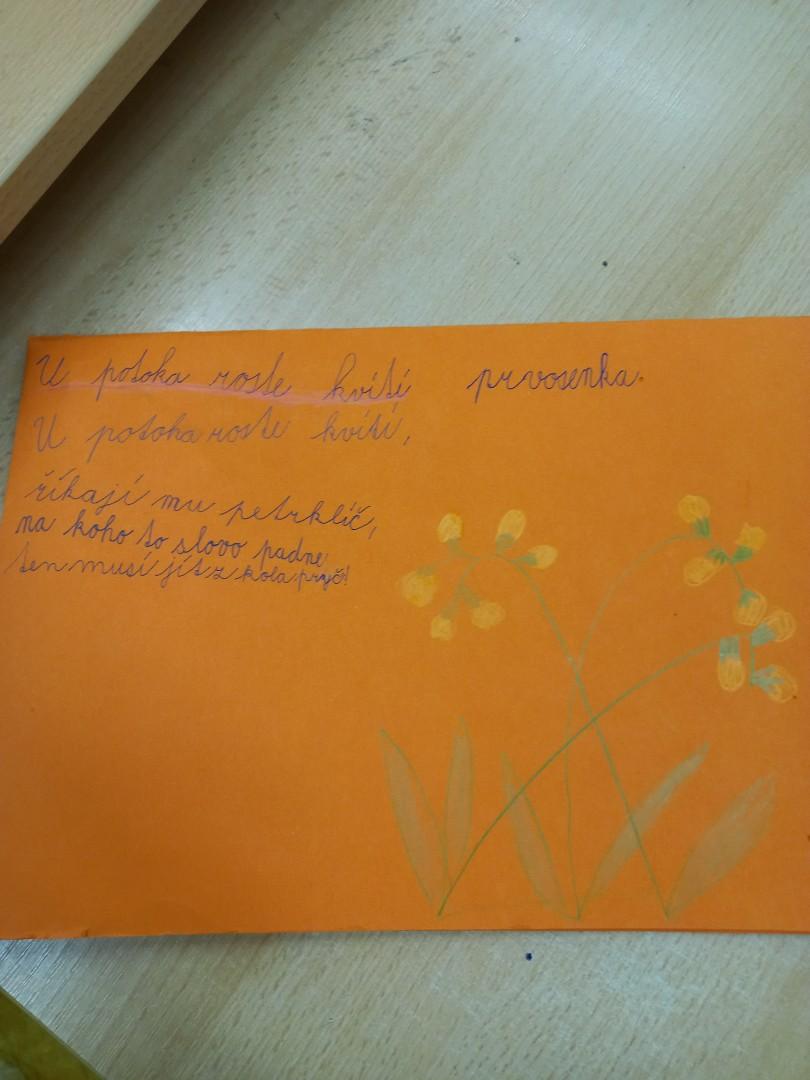 U potoka roste kvítí prvosenka.
U potoka roste kvítí,
říkají mu petrklíč,
na koho to slovo padne
ten musí jít z kola pryč!